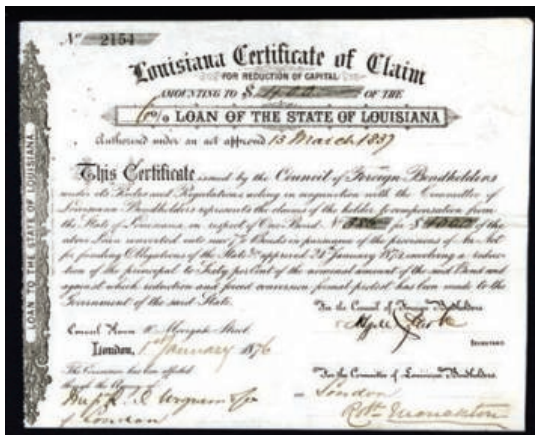 No 2154
Louisiana Certificate of Claim
FOR REDUCTION OF CAPITAL
AMOUNTING TO $ 400 OF THE
6% LOAN OF THE STATE OF LOUISIANA
Authorised under an act approved 13 March 1837
This Certificate issued by the Council of Foreign Bondholders
under its Rules and Regulations acting in conjunction with the Committee of
Louisiana Bondholders represents the claims of the holder for compensation from
the State of Louisiana, in respect of One Bond No for $ of the
above Loan converted into new 7% Bonds in pursuance of the provisions of An Act
for funding Obligations of the State approved 24 January 1874 involving a reduc-
tion of the principal to Sixty per Cent of the nominal amount of the said Bond and
against which reduction and forced conversion formal protest has been made to the
Government of the said State.
For the Council of Foreign Bondholders
Hyde Clarke
SECRETARY.
Council House 10 Moorgate Street
London, 1st January 1876
This Conversion has been effected
through the
of London
For the Committee of Louisiana Bondholders.
London
LOAN TO THE STATE OF LOUISIANA